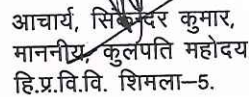 आचार्य, सिकन्दर कुमार,
माननीय, कुलपति महोदय
हि.प्र.वि.वि. शिमला–5.